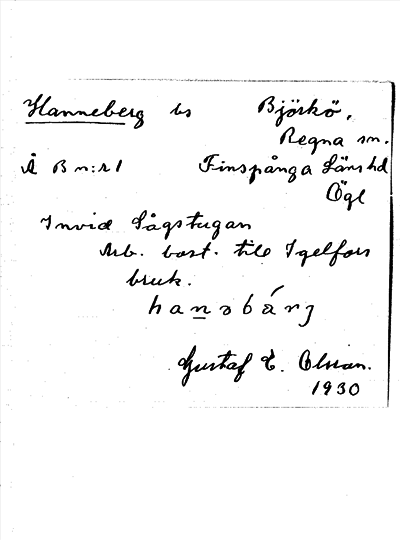 Hanneberg bs Björkö,
Regna sn.
Å B n:r 1 Finspånga Länshd
Ögl
Invid Sågstugan
Arb. bost. till Igelfors
bruk.
Gustaf E. Olsson.
1930